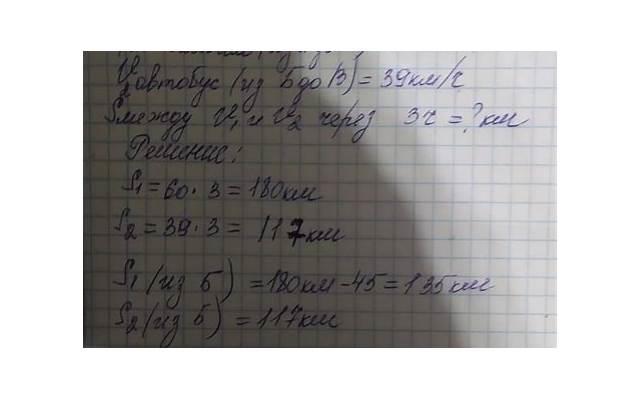 V₂ автобус (из Б до В) = 39 км/ч
S между V₁ и V₂ через 3ч = ? км
Решение:
S₁ = 60 · 3 = 180 км
S₂ = 39 · 3 = 117 км
S₁ (из Б) = 180 км - 45 = 135 км
S₂ (из Б) = 117 км